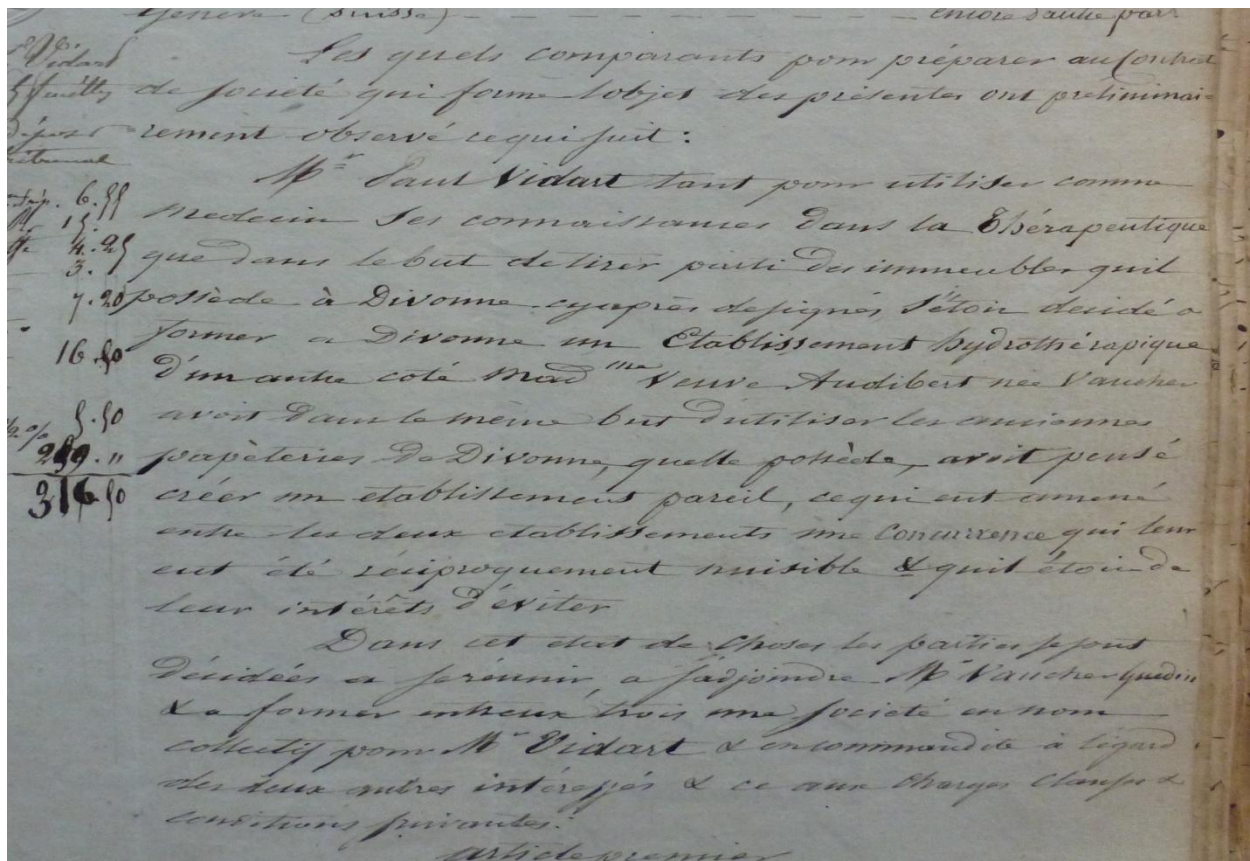 Genève (Suisse) — — — — — — encore d'autre part
Les quels comparants pour préparer au Contrat
de société qui forme l'objet des présentes ont preliminai-
rement observé ce qui suit :
Mr Paul Vidart tant pour utiliser comme
Medecin Ses connaissances dans la Thérapeutique
que dans le but de tirer parti des immeubles quil
possède à Divonne cyaprès designés S'étoit decidé a
former a Divonne un Etablissement hydrothérapique
D'un autre coté Madme Veuve Audibert née Vaucher
avoit dans le même but d'utiliser les anciennes
papèteries de Divonne, quelle possède, avoit pensé
créer un etablissement pareil, ce qui eut amené
entre les deux etablissements une Concurrence qui leur
eut été réciproquement nuisible & quil étoit de
leur intérêts d'éviter
Dans cet état de choses les parties se sont
décidées a se réunir, a s'adjoindre Mr Vaucher Guedin
& a former entreux trois une société en nom
collectif pour Mr Vidart & en commandite à légard
des deux autres intéressés & ce aux charges clauses &
conditions suivantes :
article premier
Vidart
6.55
15
4.25
3.
7.20
16.50
5.50
299.„
316.50